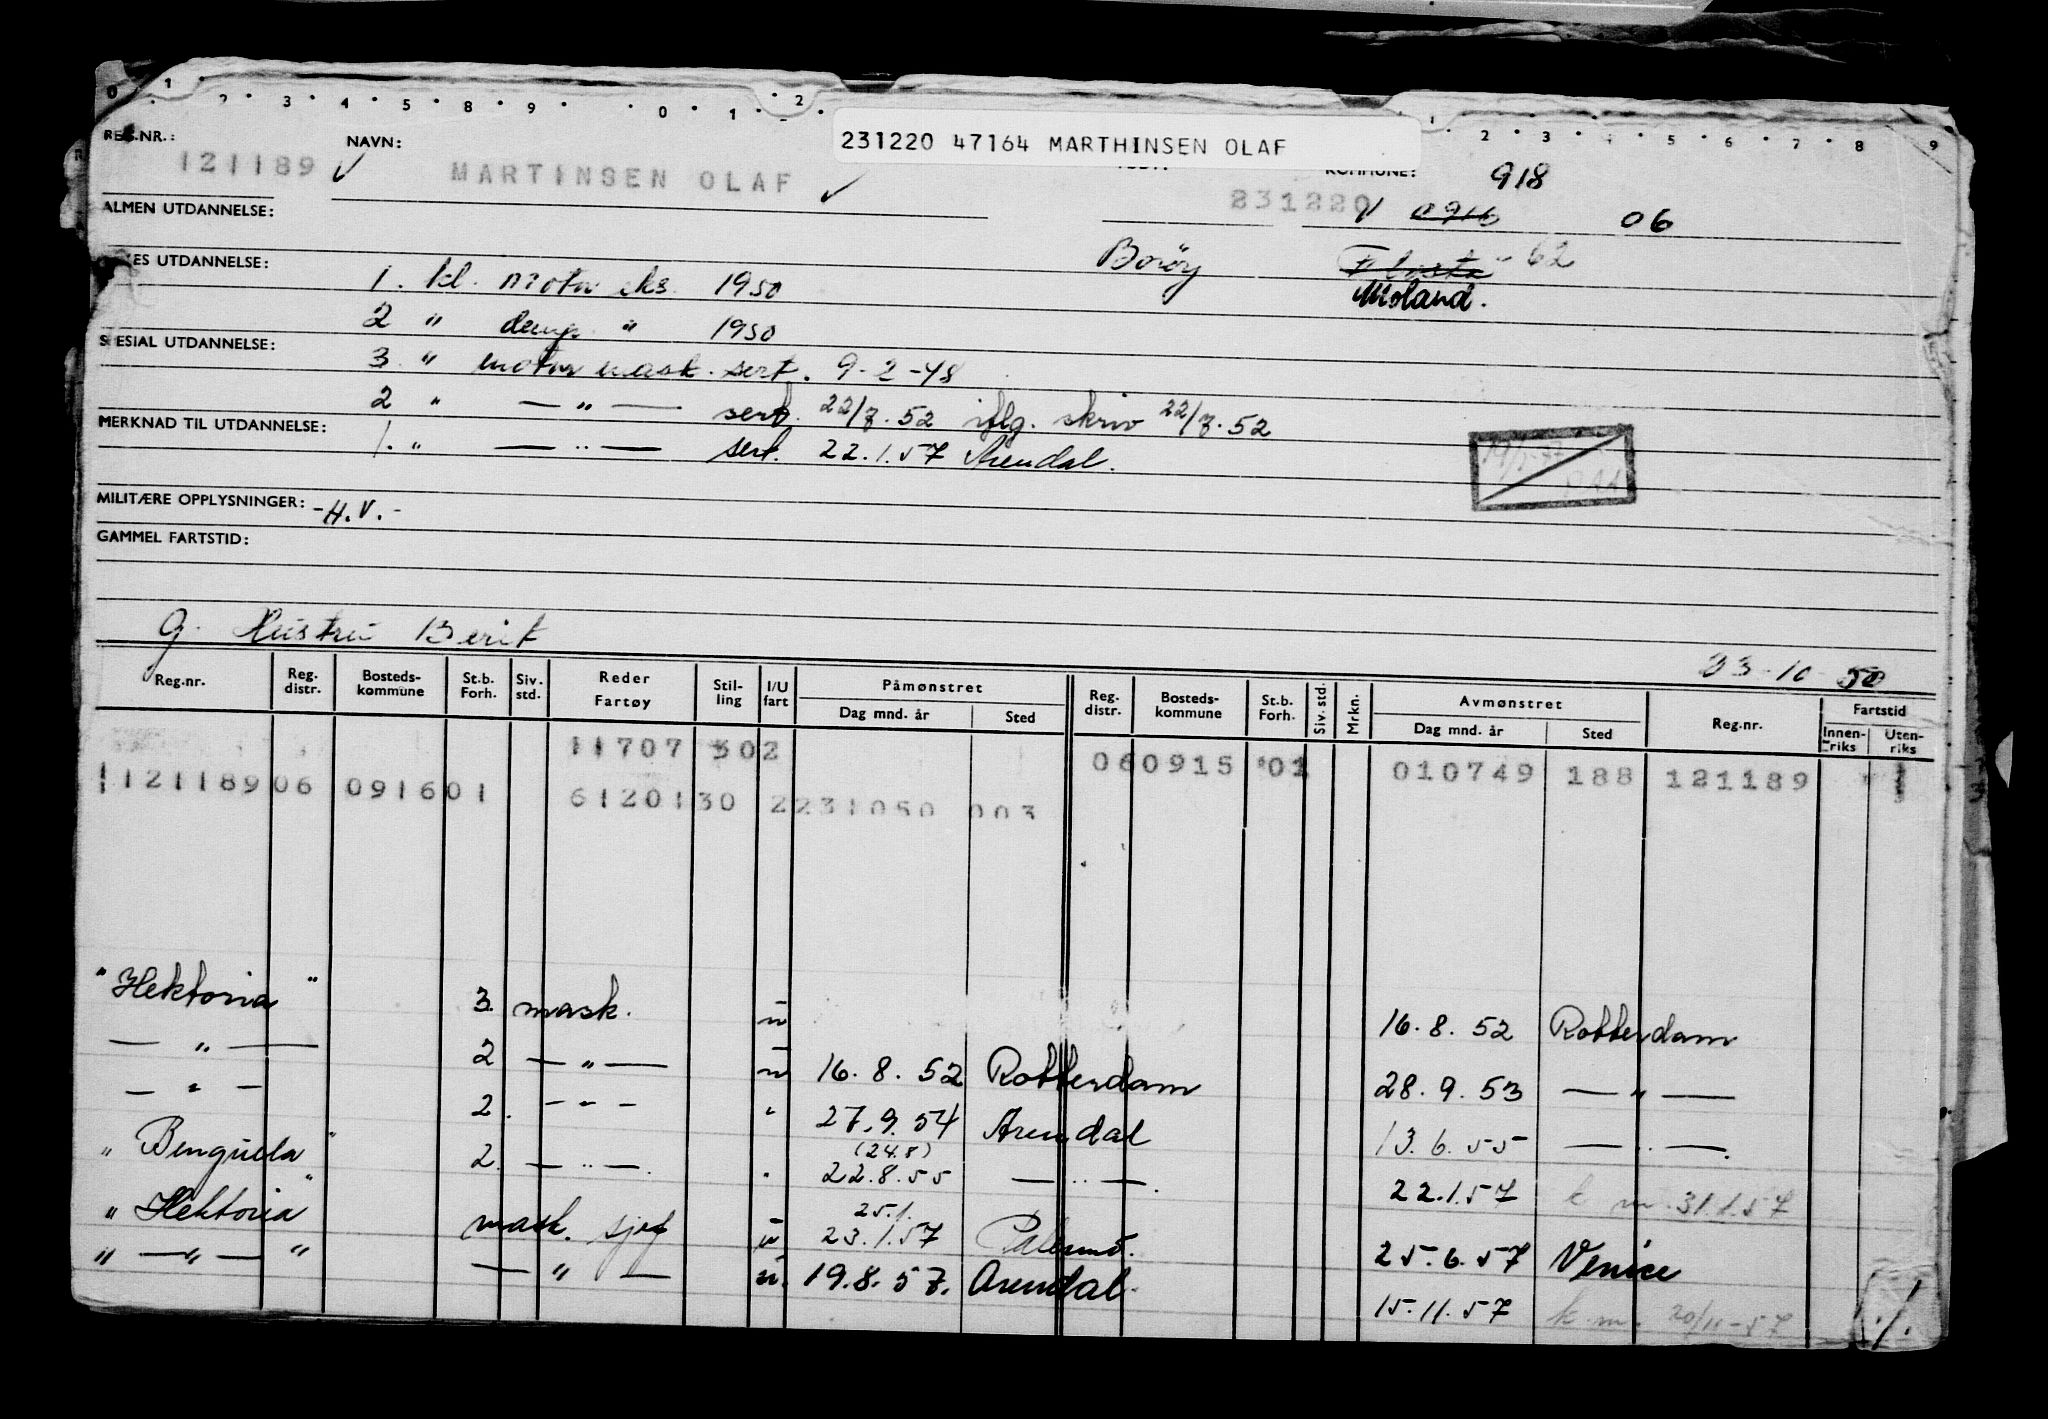 0 1 2 3 4 5 6 8 9 0 1 2 1 2 3 4 5 6 7 8 9
231220 47164 MARTHINSEN OLAF
REG.NR.: NAVN: KOMMUNE: 918
121189 ✓ MARTINSEN OLAF ✓ 231220 0916 06
ALMEN UTDANNELSE:
Borøy Flosta - 62
Moland.
UTDANNELSE: 1. kl. motor eks. 1950
2 " damp " 1950
SPESIAL UTDANNELSE:
3. " motor mask. sert. 9-2-48
2 " — " — sert. 22/7.52 iflg. skriv 22/7.52
MERKNAD TIL UTDANNELSE:
1. " — " — sert. 22.1.57 Arendal.
MILITÆRE OPPLYSNINGER: -H.V.-
GAMMEL FARTSTID:
g. Hustru Berit
23-10-50
Reg.nr. Reg. distr. Bosteds-kommune St.b. Forh. Siv. std. Reder Fartøy Stil-ling I/U fart Påmønstret Dag mnd. år Sted Reg. distr. Bosteds-kommune St.b. Forh. Siv. std. Mrkn. Avmønstret Dag mnd. år Sted Reg.nr. Fartstid Innen-riks Uten-riks
11707 302 060915 01 010749 188 121189
112118906 091601 6120130 2231050 003
"Hektoria" 3. mask. u 16.8.52 Rotterdam
— " — 2 — " — u 16.8.52 Rotterdam 28.9.53 — " —
— " — 2. — " — " 27.9.54 Arendal 13.6.55 — " —
(24.8)
"Benguela" 2. — " — " 22.8.55 — " — 22.1.57 k m. 31.1.57
25.1.
"Hektoria" mask. sjef u 23.1.57 Palermo. 25.6.57 Venice
" — " — " — " — u. 19.8.57. Arendal. 15.11.57 k.m. 20/11-57
./.